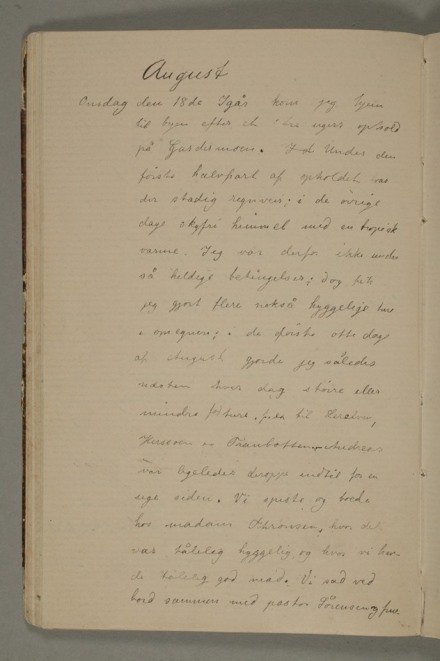 August
Onsdag den 18de Igår kom jeg hjem
til byen efter et tre ugers ophold
på Gardermoen. Under den
første halvpart af opholdet var
der stadig regnveir; i de øvrige
dage skyfri himmel med en tropisk
varme. Jeg var derfor ikke under
så heldige betingelser; dog fik
jeg gjort flere nokså hyggelige ture
i omegnen; i de første otte dage
af August gjorde jeg således
næsten hver dag større eller
mindre fodture, f. ex. til
Andreas
var ligeledes deroppe indtil for en
uge siden. Vi spiste og boede
hos madam hvor det
var tålelig hyggelig og hvor vi hav-
de tålelig god mad. Vi sad ved
bord sammen med pastor Sørensen og frue.